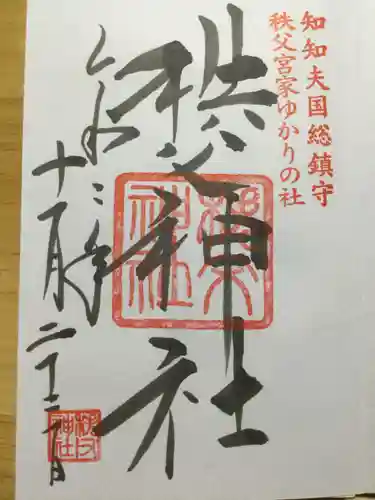 知知夫国総鎮守
秩父宮家ゆかりの社
秩父神社
令和二年
十一月二十三日
秩父神社
秩父神社